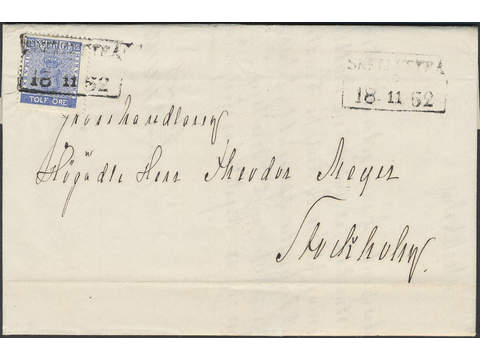 18 11 62
TOLF ÖRE
18 11 62
Grosshandlaren
Högädle Herr Theodor Meyer
Stockholm